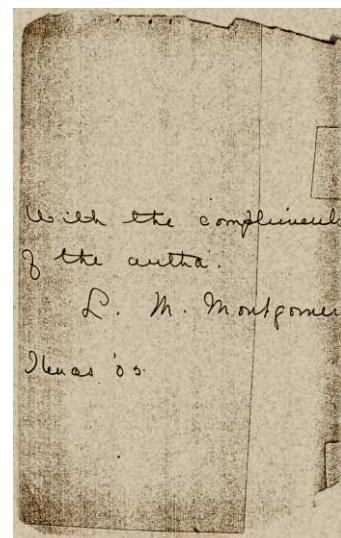 With the compliments
of the author.
L. M. Montgomer
Xmas '05.